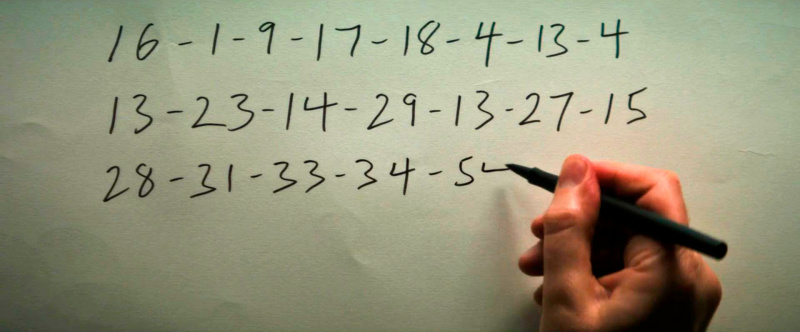 16-1-9-17-18-4-13-4
13-23-14-29-13-27-15
28-31-33-34-5